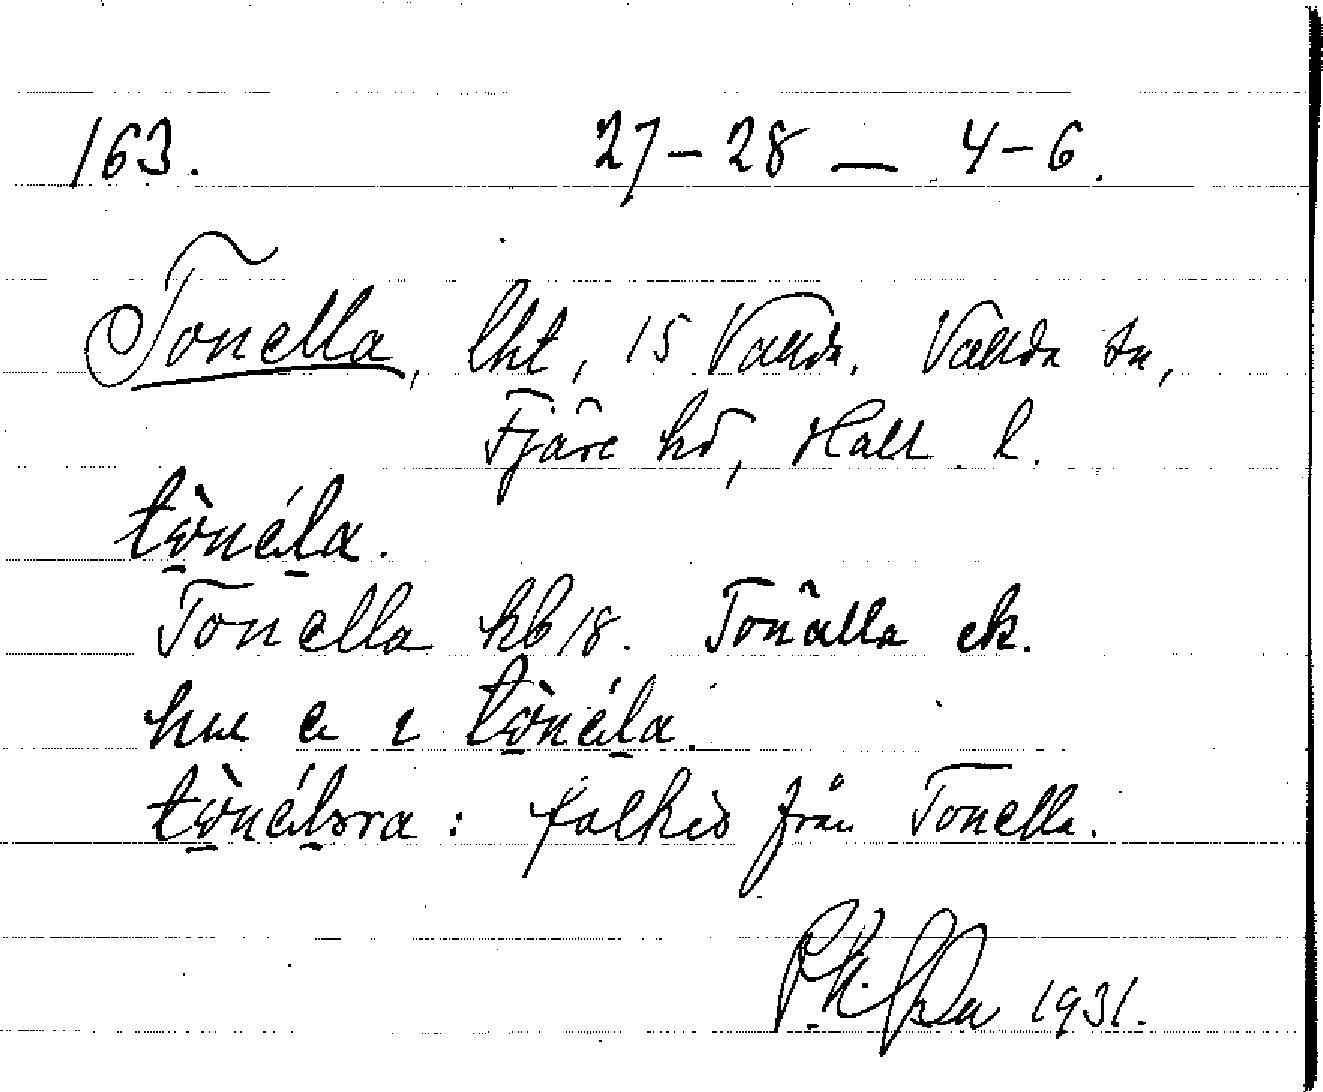 163. 27-28 — 4-6.
Tonella, lht, 15 Vallda. Vallda sn,
Fjäre hd, Hall. l.
tònéla.
Tonella kb 18. Tonälla ek.
tònéla.
: folket från Tonella.
1931.